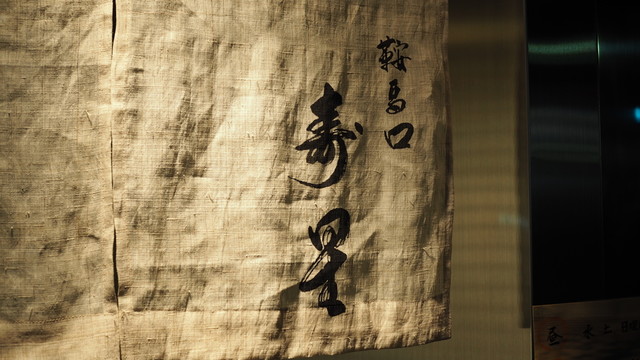 鞍馬口
寿星